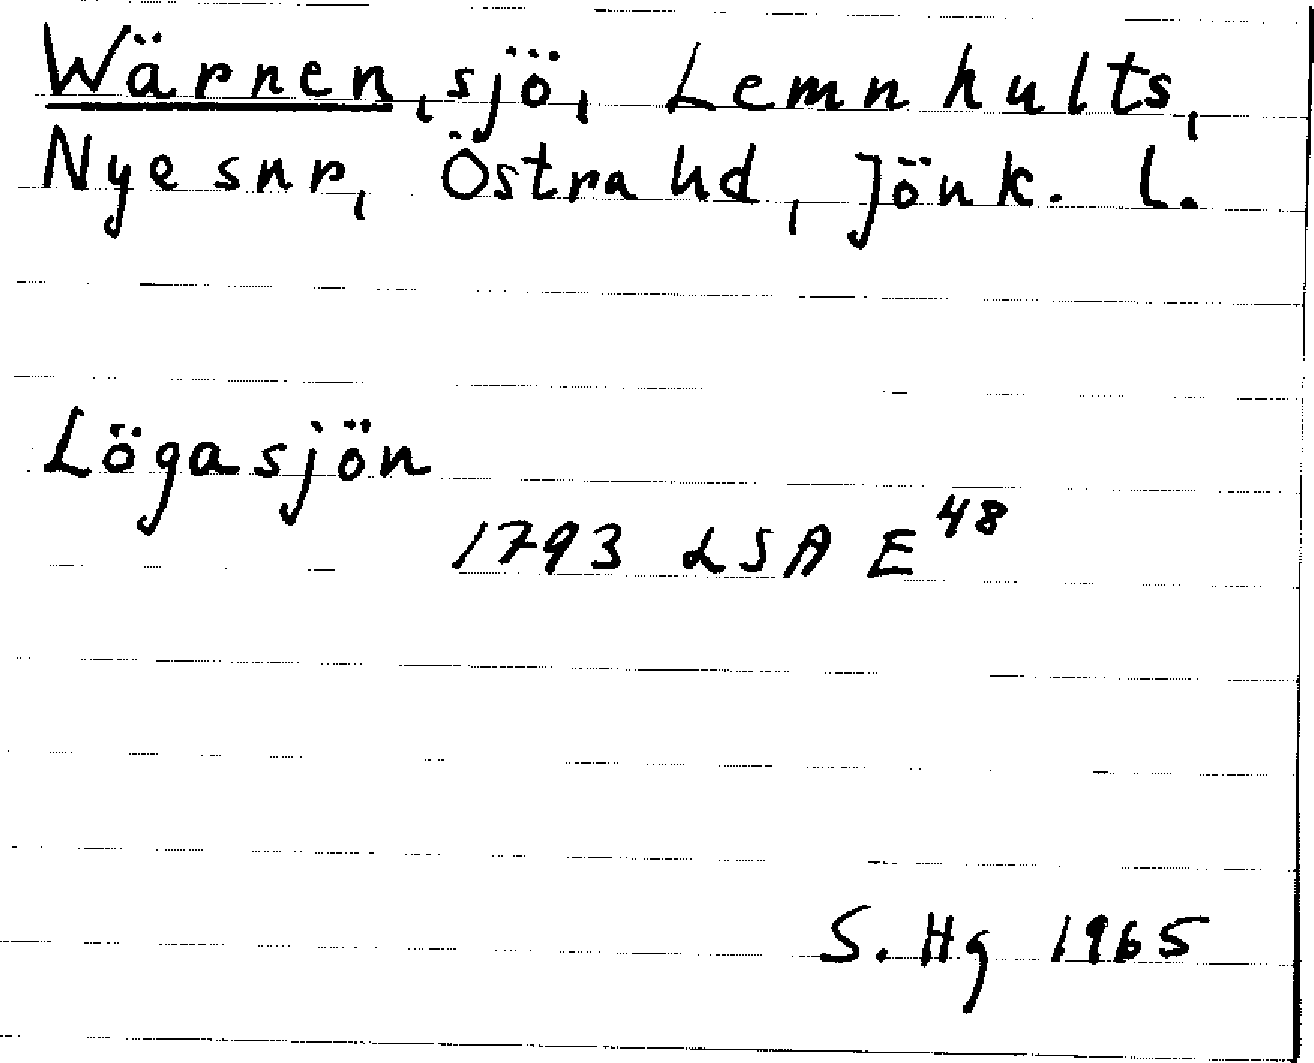 Wärnen, sjö, Lemnhults,
Nye snr, Östra hd, Jönk. l.
Lögasjön
1793 LSA E 48
S. Hg 1965